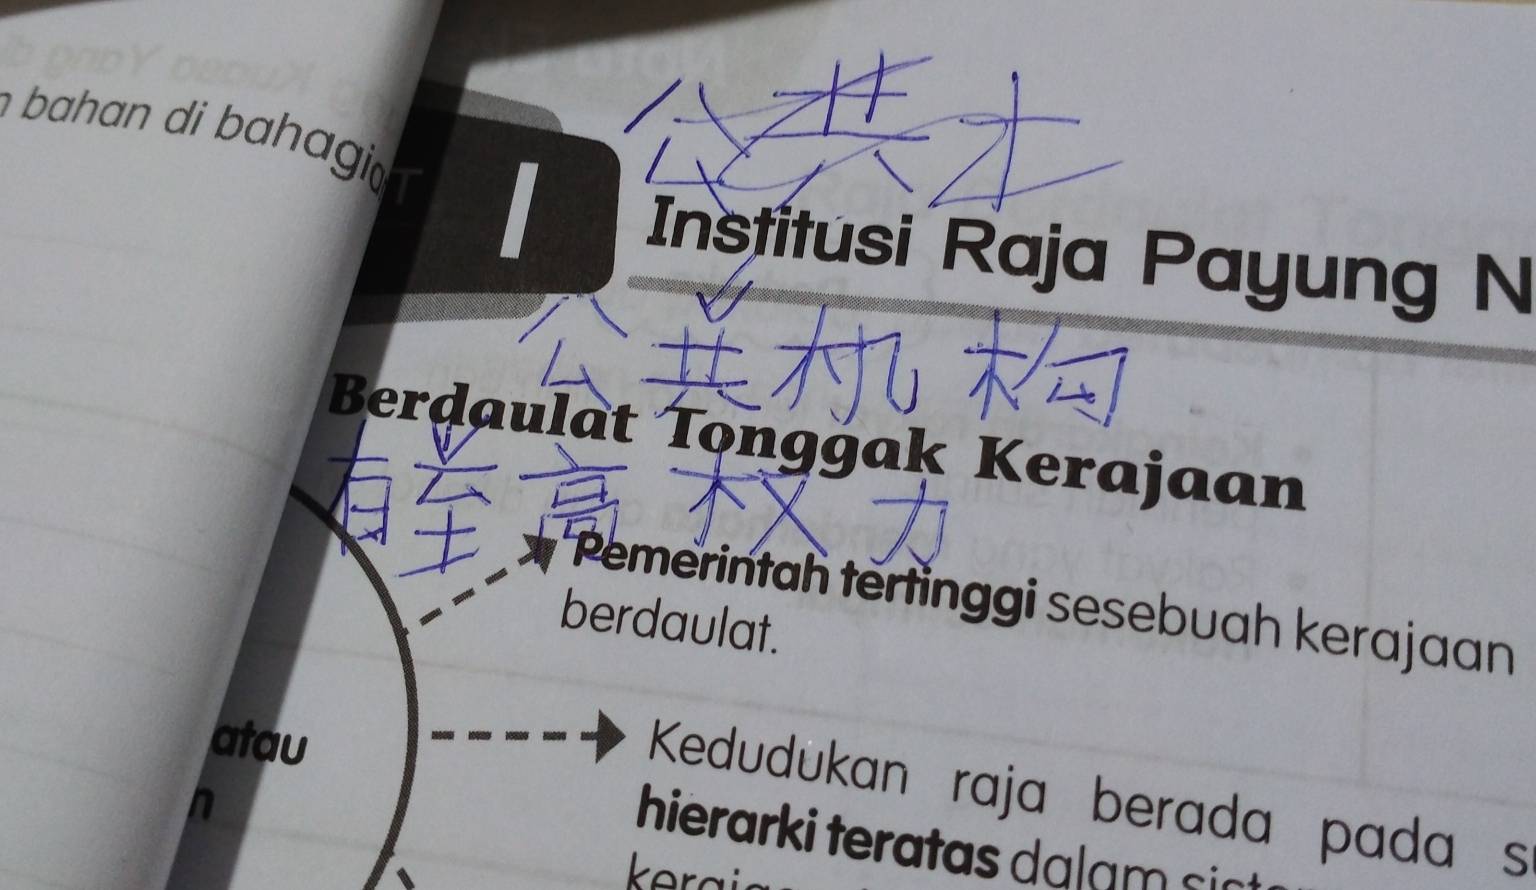 bahan di bahagia
公共
1 Institusi Raja Payung N
公共机构
Berdaulat Tonggak Kerajaan
有至高权力
Pemerintah tertinggi sesebuah kerajaan
berdaulat.
atau
Kedudukan raja berada pada
n
hierarki teratas dalam